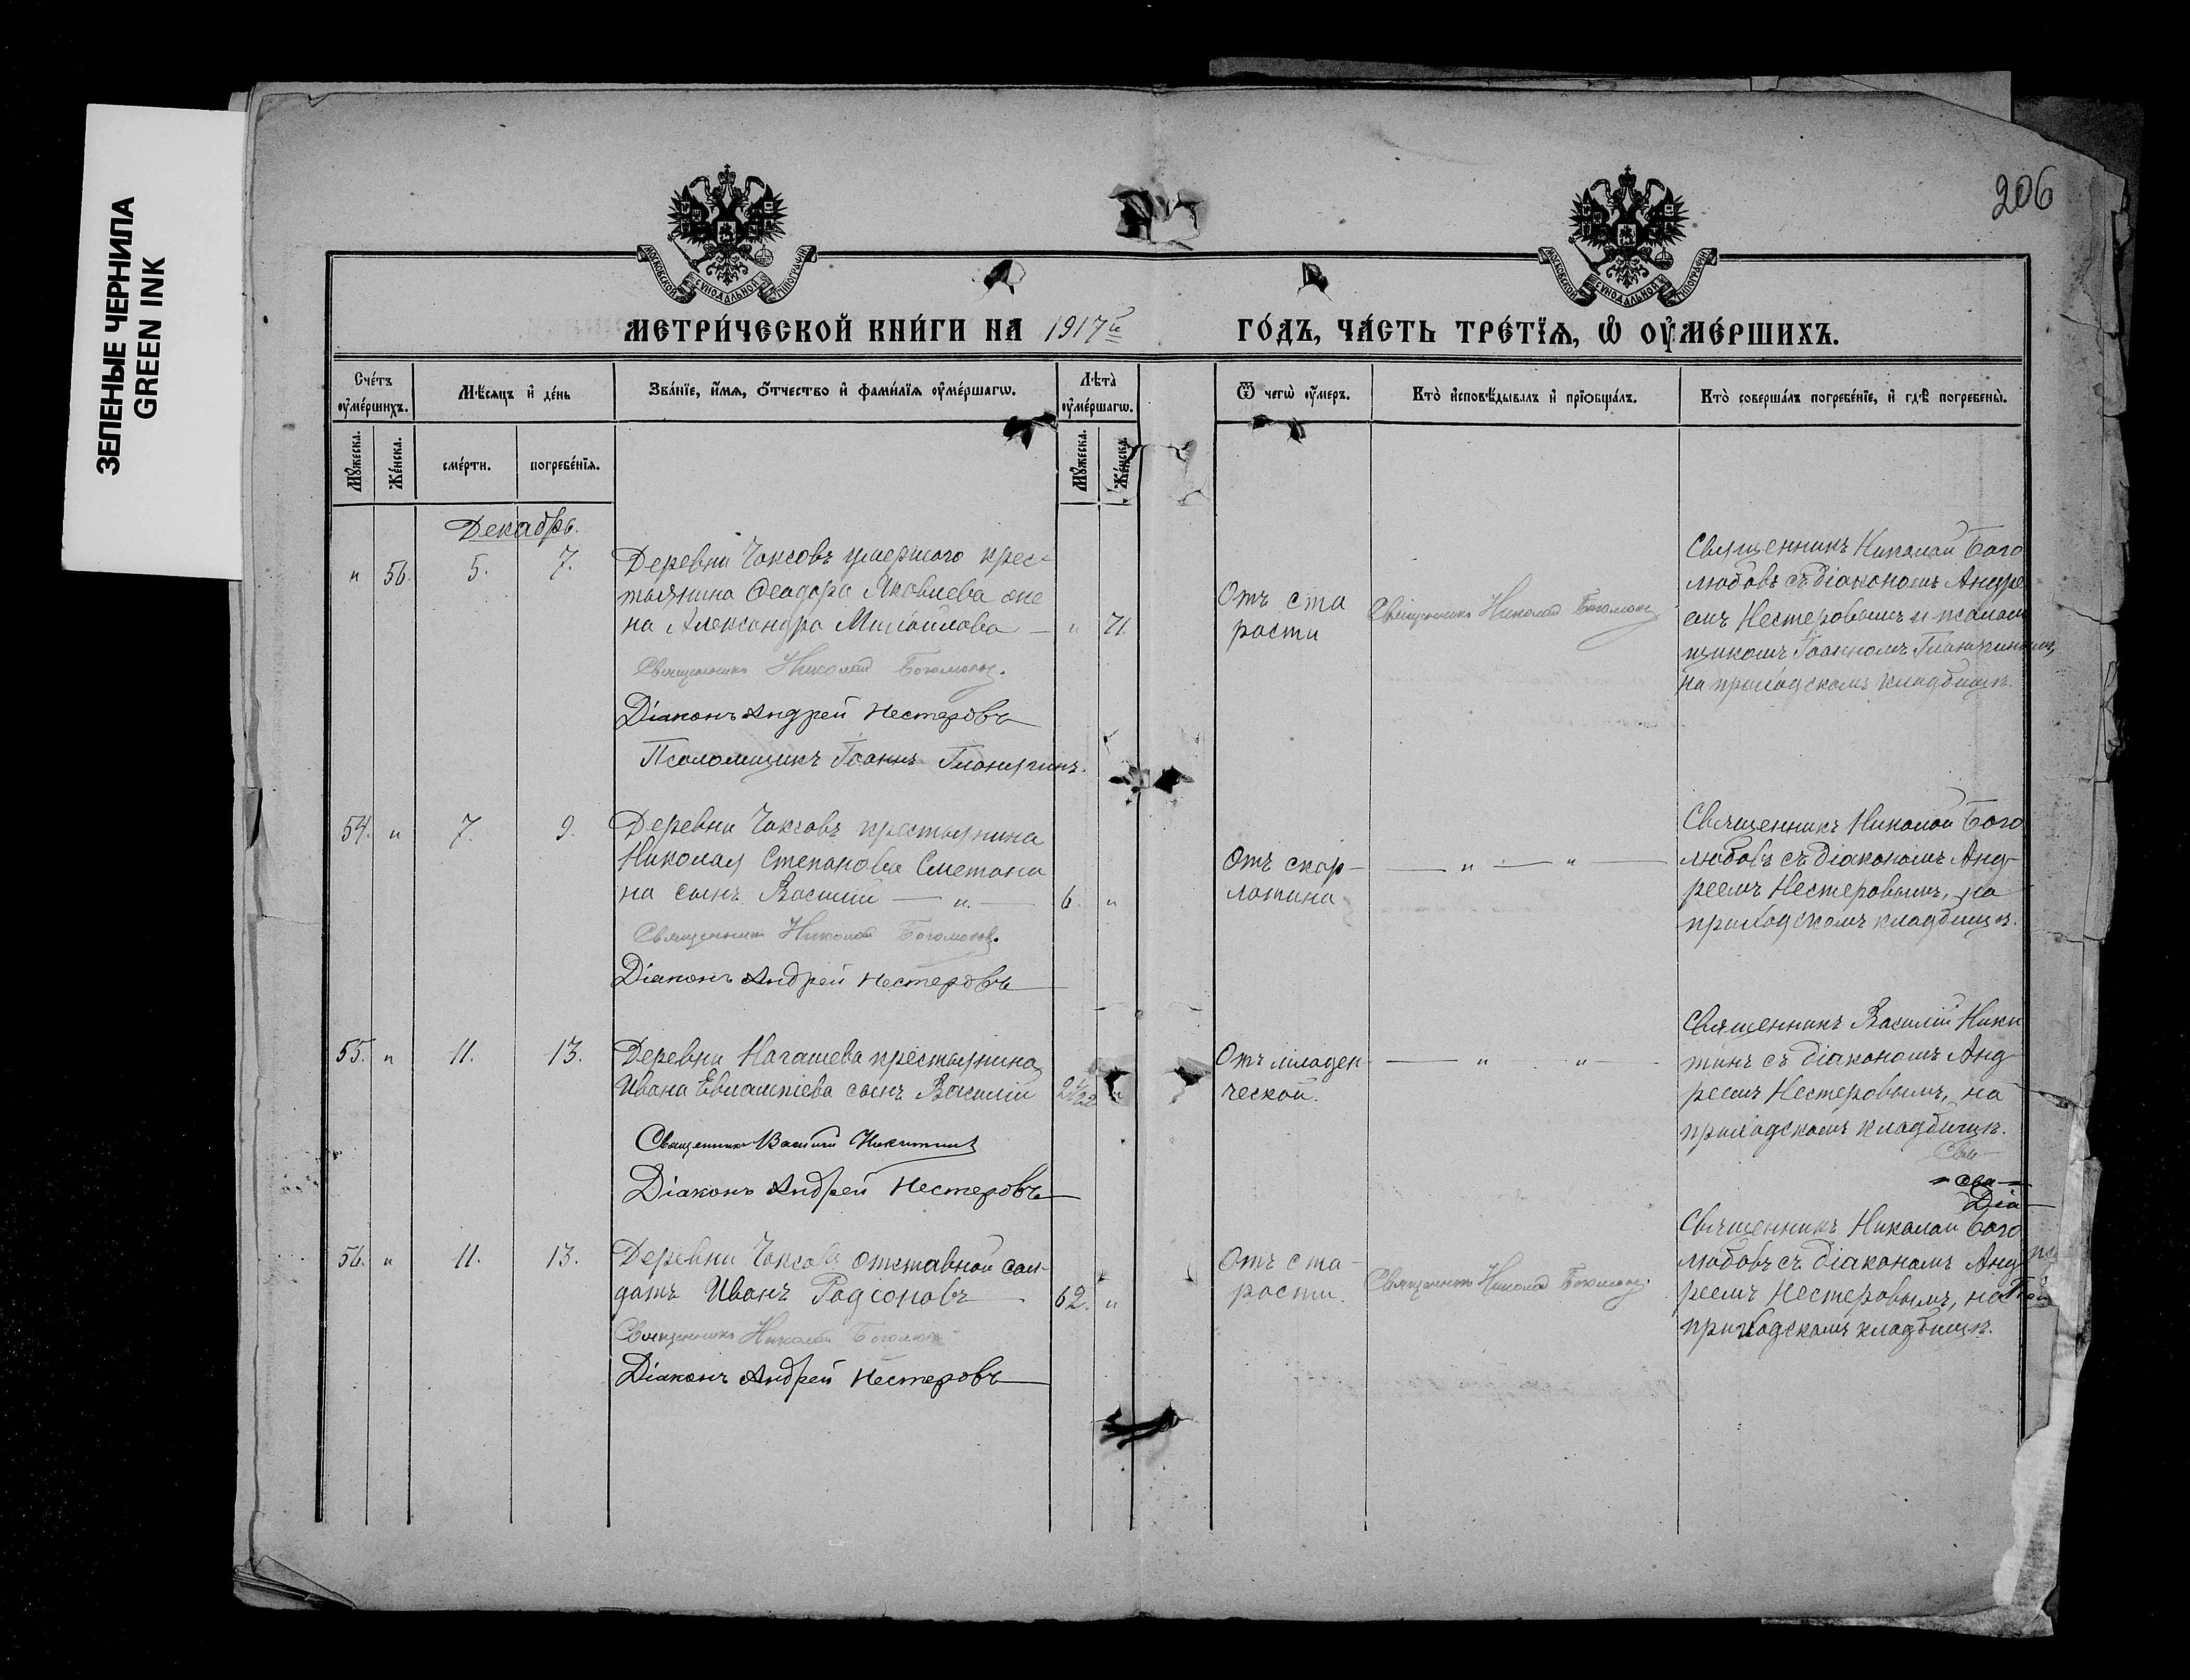 ЗЕЛЕНЫЕ ЧЕРНИЛА
GREEN INK
206
МОСКОВСКОЙ СѴНОДАЛЬНОЙ ТИПОГРАФІИ
МОСКОВСКОЙ СѴНОДАЛЬНОЙ ТИПОГРАФІИ
МЕТРИ́ЧЕСКОЙ КНИ́ГИ НА 1917й ГО́ДЪ, ЧА́СТЬ ТРЕ́ТЇѦ, Ѡ҆ ОУ҆МЕ́РШИХЪ.
Сче́тъ оу҆ме́ршихъ.
Мѣ́сяцъ и҆ де́нь
Зва́нїе, и҆́мѧ, ѻ҆́тчество и҆ фами́лїѧ оу҆ме́ршагѡ.
Лѣ́та̀ оу҆ме́ршагѡ.
Ѿ чегѡ̀ оу҆́меръ.
Кто̀ и҆сповѣ́дывалъ и҆ прїѻбща́лъ.
Кто̀ соверша́лъ погребе́нїе, и҆ гдѣ̀ погребены̀.
Мꙋ́жеска.
Же́нска.
сме́рти.
погребе́нїѧ.
Мꙋ́жеска.
Же́нска.
Декабрь.
" 56. 5. 7. Деревни Чаксовъ умершаго крес-
тьянина Ѳеодора Яковлева же
на Александра Михайлова — " 71.
Священникъ Николай
Діаконъ Андрей Нестеровъ
Псаломщикъ Іоаннъ
Отъ ста
рости
Священникъ Николай
Священникъ Николай Бого
любовъ съ діакономъ Андре
емъ Нестеровымъ и псалом
щикомъ Іоанномъ
на приходскомъ кладбищѣ.
54. " 7. 9. Деревни Чаксовъ крестьянина
Николая Степанова Сметани
на сынъ Василій — " — 6 "
Священникъ Николай
Діаконъ Андрей Нестеровъ
Отъ скар-
латина
— " — " —
Священникъ Николай Бого
любовъ съ діакономъ Анд-
реемъ Нестеровымъ, на
приходскомъ кладбищѣ.
55. " 11. 13. Деревни крестьянина
Ивана Евлампіева сынъ Василій "
Священникъ Василій Никитинъ
Діаконъ Андрей Нестеровъ
Отъ младен
ческой.
— " " —
Священникъ Василій Ники
тинъ съ діакономъ Анд-
реемъ Нестеровымъ, на
приходскомъ кладбищѣ.
56. " 11. 13. Деревни Чаксовъ отставной сол-
датъ Иванъ Радіоновъ 62. "
Священникъ Николай
Діаконъ Андрей Нестеровъ
Отъ ста-
рости.
Священникъ Николай
Священникъ Николай Бого
любовъ съ діакономъ Анд
реемъ Нестеровымъ, на
приходскомъ кладбищѣ.